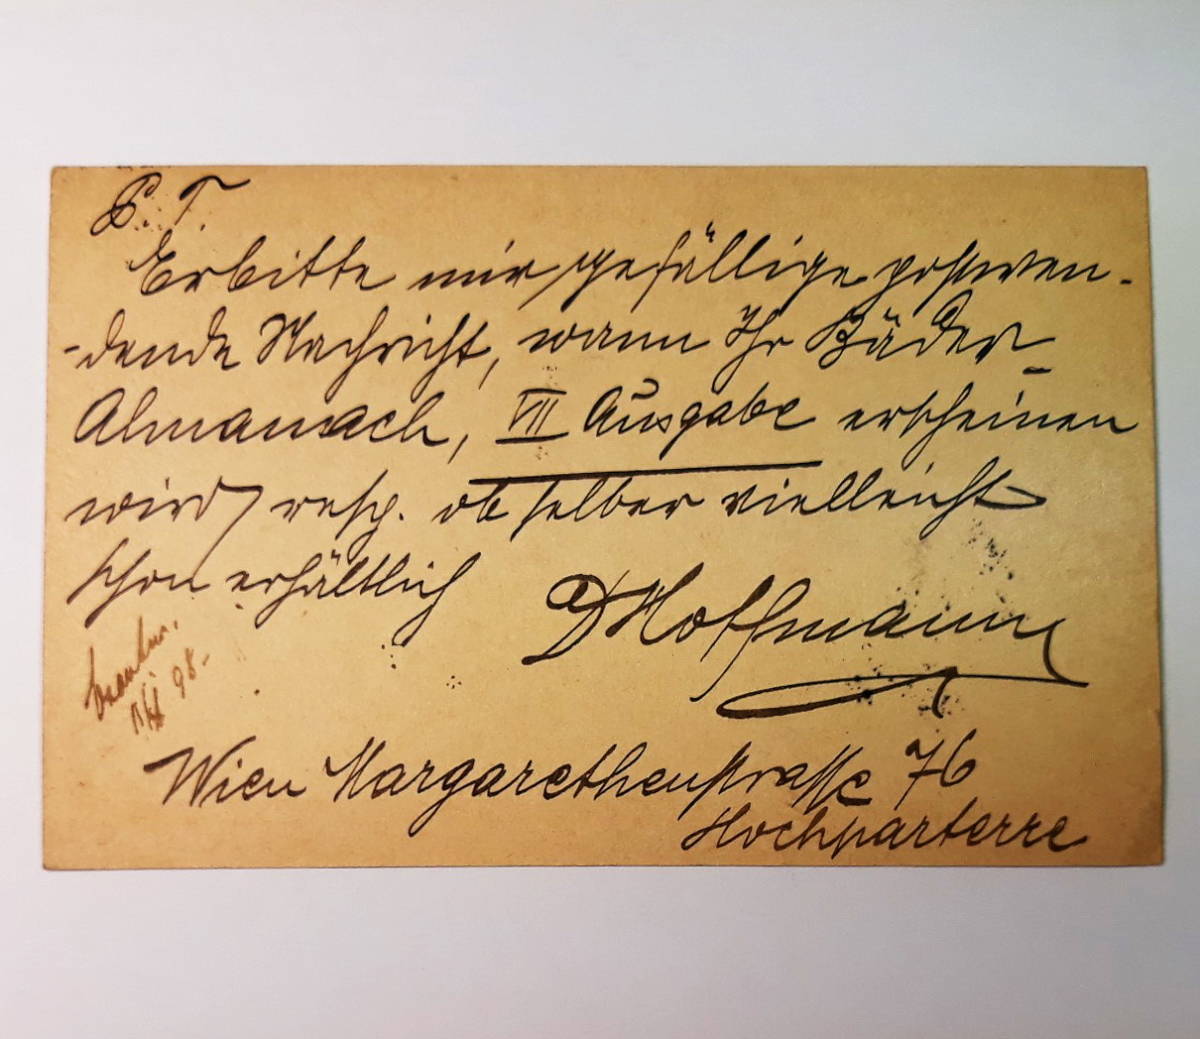 P. T.
Erbitte mir gefällige postwen-
-dende Nachricht, wann Ihr Bäder-
Almanach, VII Ausgabe erscheinen
wird, resp. ob selber vielleicht
schon erhältlich
D Hoffmann
98.
Wien Margarethenstrasse 76
Hochparterre